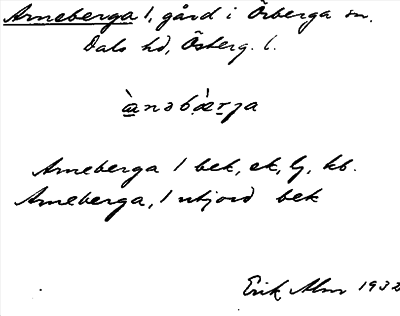 Arneberga 1, gård i Örberga sn.
Dals hd, Östberg. l.
å̱̀nəbæ̀r̠ja
Arneberga 1 bek, ek, lj, kb.
Arneberga, 1 utjord bek
Erik Alm 1932